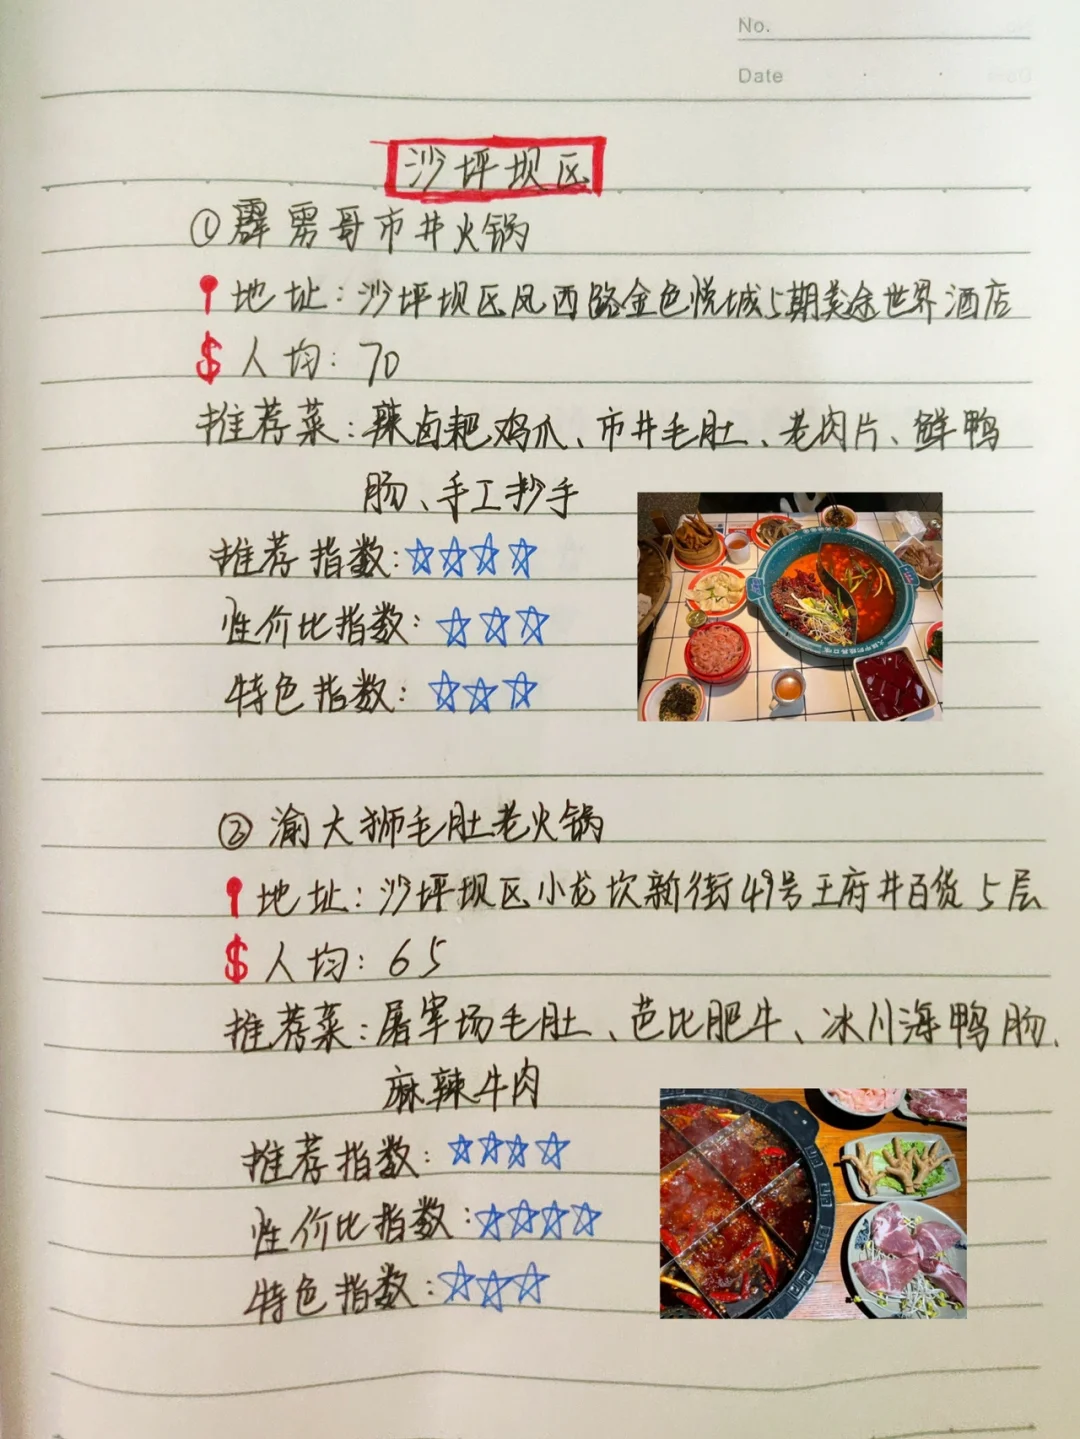 No.
Date
沙坪坝区
①霹雳哥市井火锅
地址：沙坪坝区凤西路金色悦城5期美途世界酒店
$人均：70
推荐菜：辣卤耙鸡爪、市井毛肚、老肉片、鲜鸭
肠、手工抄手
推荐指数：☆☆☆☆
性价比指数：☆☆☆
特色指数：☆☆☆
②渝大狮毛肚老火锅
地址：沙坪坝区小龙坎新街49号王府井百货5层
$人均：65
推荐菜：屠宰场毛肚、芭比肥牛、冰川海鸭肠、
麻辣牛肉
推荐指数：☆☆☆☆
性价比指数：☆☆☆☆
特色指数：☆☆☆